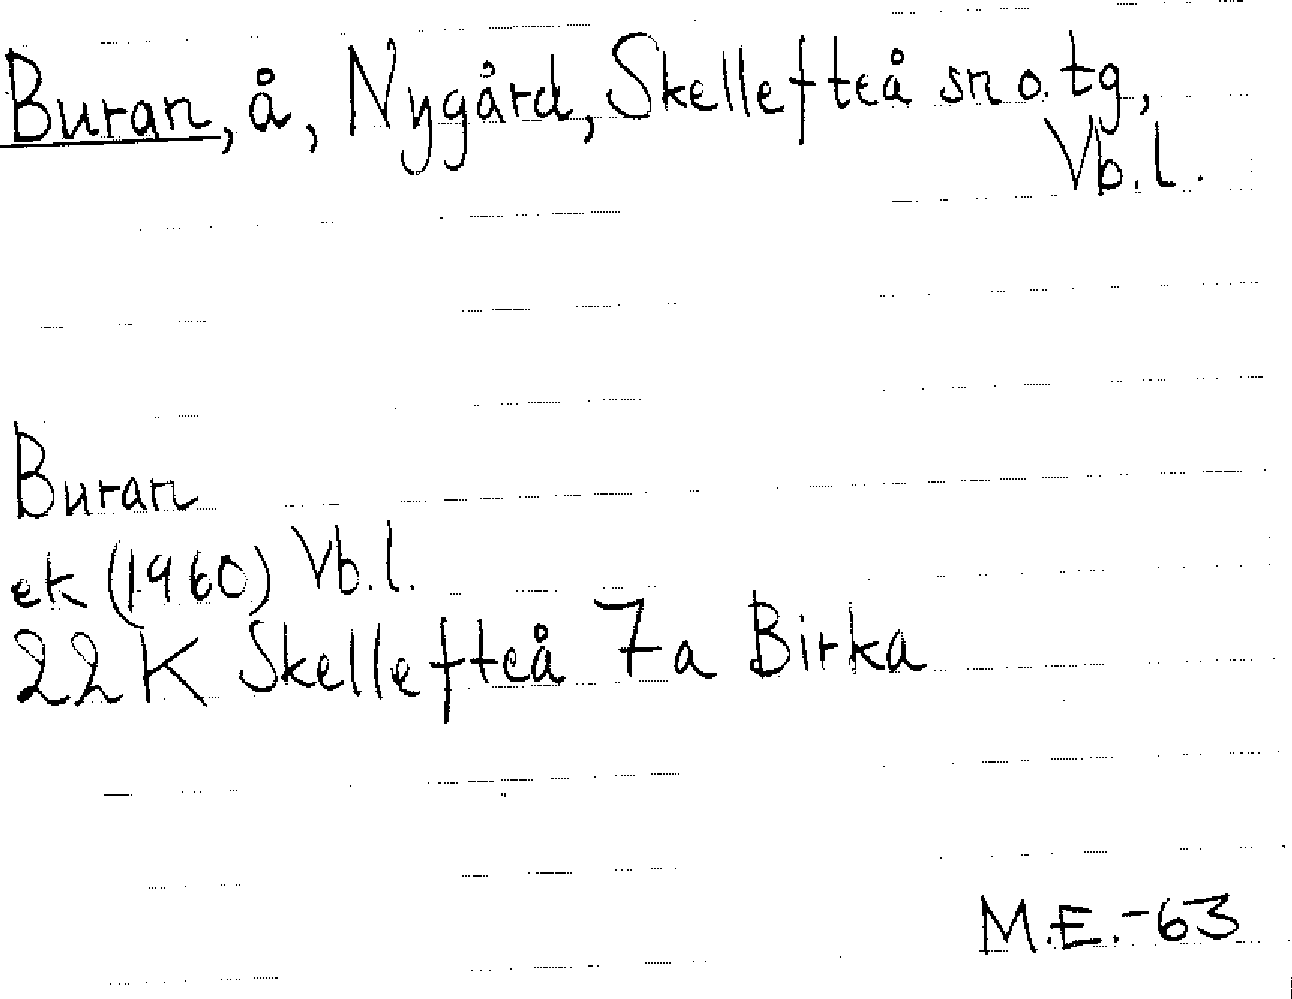 Buran, å, Nygård, Skellefteå sn o. tg,
Vb.l.
Buran
ek (1960) Vb.l.
22K Skellefteå 7a Birka
M.E.-63